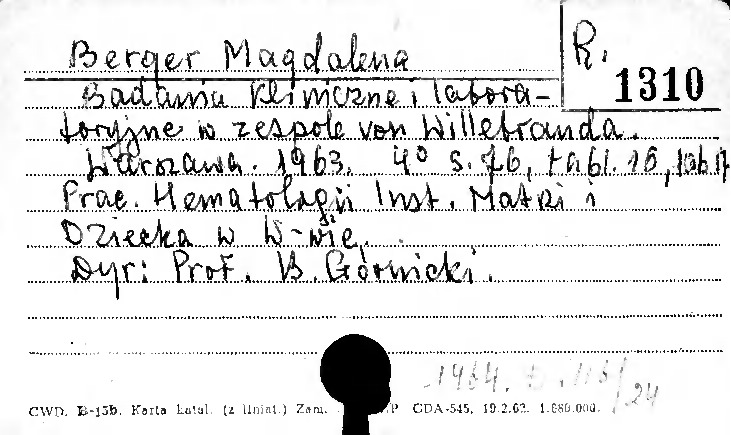 Berger Magdalena
R.
1310
Badania kliniczne i labora-
toryjne w zespole von Willebranda.
Warszawa. 1963. 4° s. 76, tabl. 16,
Prac. Hematologii Inst. Matki i
Dziecka w W-wie.
Dyr: Prof. B. Górnicki.
1964.
CWD. B-15b. Karta katal. (z liniat.) Zam. CDA-545. 19.2.62. 1.680.000.